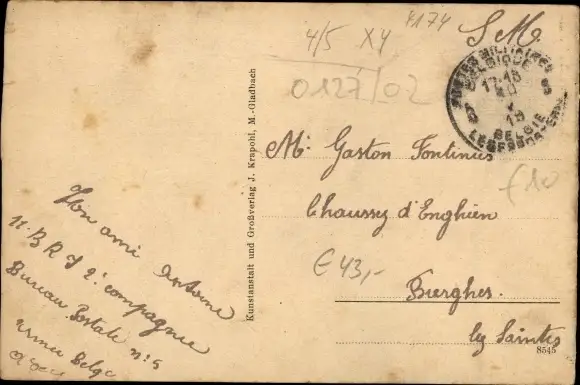 S M
4174
4/5 XY
0127/02
POSTES MILITAIRES
BELGIQUE
17-18
19
BELGIË
LEGERPOST
Mr. Gaston Fontinus
Chaussey d'Enghien
Bierghes
lez Saintes
£10
€ 43,-
8545
Kunstanstalt und Großverlag J. Krapohl, M.-Gladbach
Ton ami Antoine
11. B R I 2e compagnie
Bureau Postale n: 5
Armée Belge